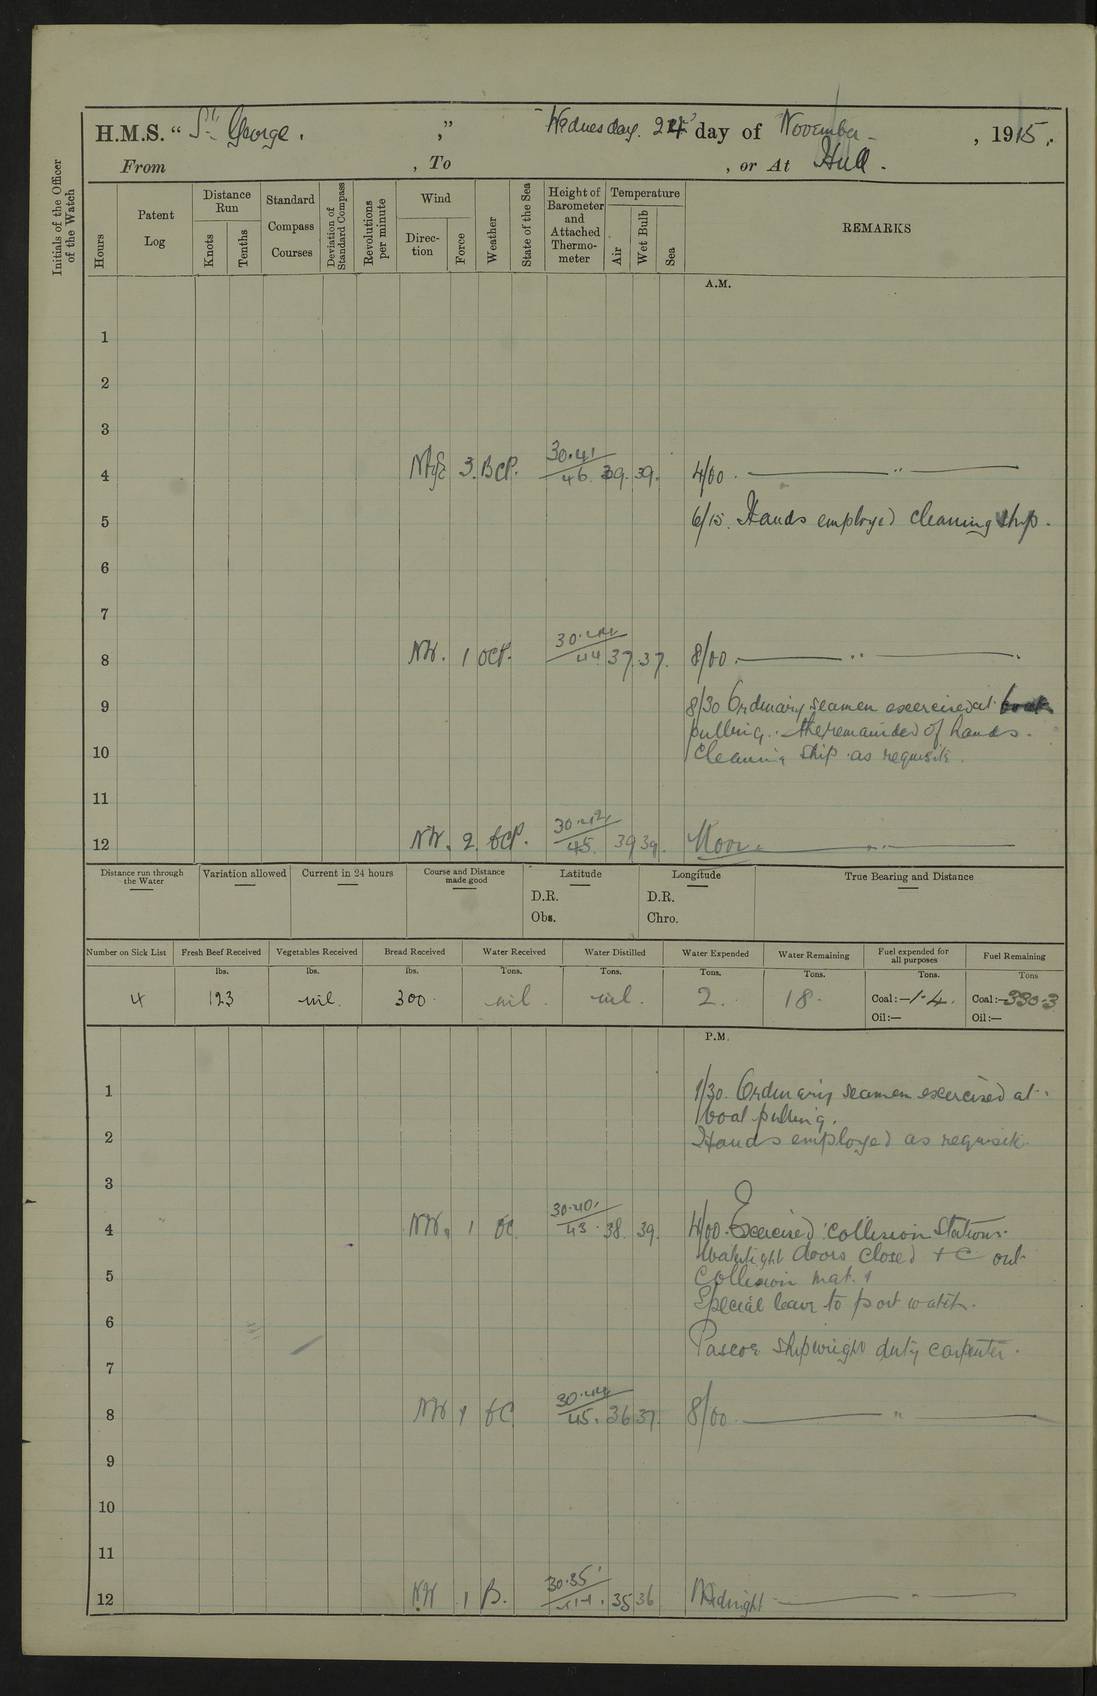 H.M.S. “ St George. ,” Wednesday. 24th day of November , 1915.
From , To , or At Hull.
Initials of the Officer of the Watch
Hours
Patent Log
Distance Run
Knots
Tenths
Standard Compass Courses
Deviation of Standard Compass
Revolutions per minute
Wind
Direc-tion
Force
Weather
State of the Sea
Height of Barometer and Attached Thermo-meter
Temperature
Air
Wet Bulb
Sea
REMARKS
A.M.
1
2
3
4 3. BCP. 30.41/46 39. 39. 4/00. ——— " ———
5 6/15. Hands employed cleaning ship.
6
7
8 NW. 1 OCP. 30.44/44 37. 37. 8/00. ——— " ———
9 8/30 Ordinary seamen exercised at
pulling. the remainder of hands.
10 Cleaning ship as requisite.
11
12 NW. 2. bCP. 30.42/45. 39 39. Noon. ——— " ———
Distance run through the Water
Variation allowed
Current in 24 hours
Course and Distance made good
Latitude
D.R.
Obs.
Longitude
D.R.
Chro.
True Bearing and Distance
Number on Sick List
Fresh Beef Received
Vegetables Received
Bread Received
Water Received
Water Distilled
Water Expended
Water Remaining
Fuel expended for all purposes
Fuel Remaining
lbs. lbs. lbs. Tons. Tons. Tons. Tons. Tons. Tons
4 123 nil. 300. nil. nil. 2. 18. Coal:—1.4. Coal:—330.3
Oil:— Oil:—
P.M.
1 1/30. Ordinary seamen exercised at
boat pulling.
2 Hands employed as requisite
3
4 NW. 1 bC 30.40/43. 38. 39. 4/00. Exercised collision Stations.
Watertight doors closed + C out
5 Collision mat.
Special leave to port watch.
6
Pascoe shipwright duty carpenter.
7
8 NW 1 bC 30.44/45. 36 37. 8/00 ——— " ———
9
10
11
12 NW 1 B. 30.35/44. 35 36 Midnight ——— " ———